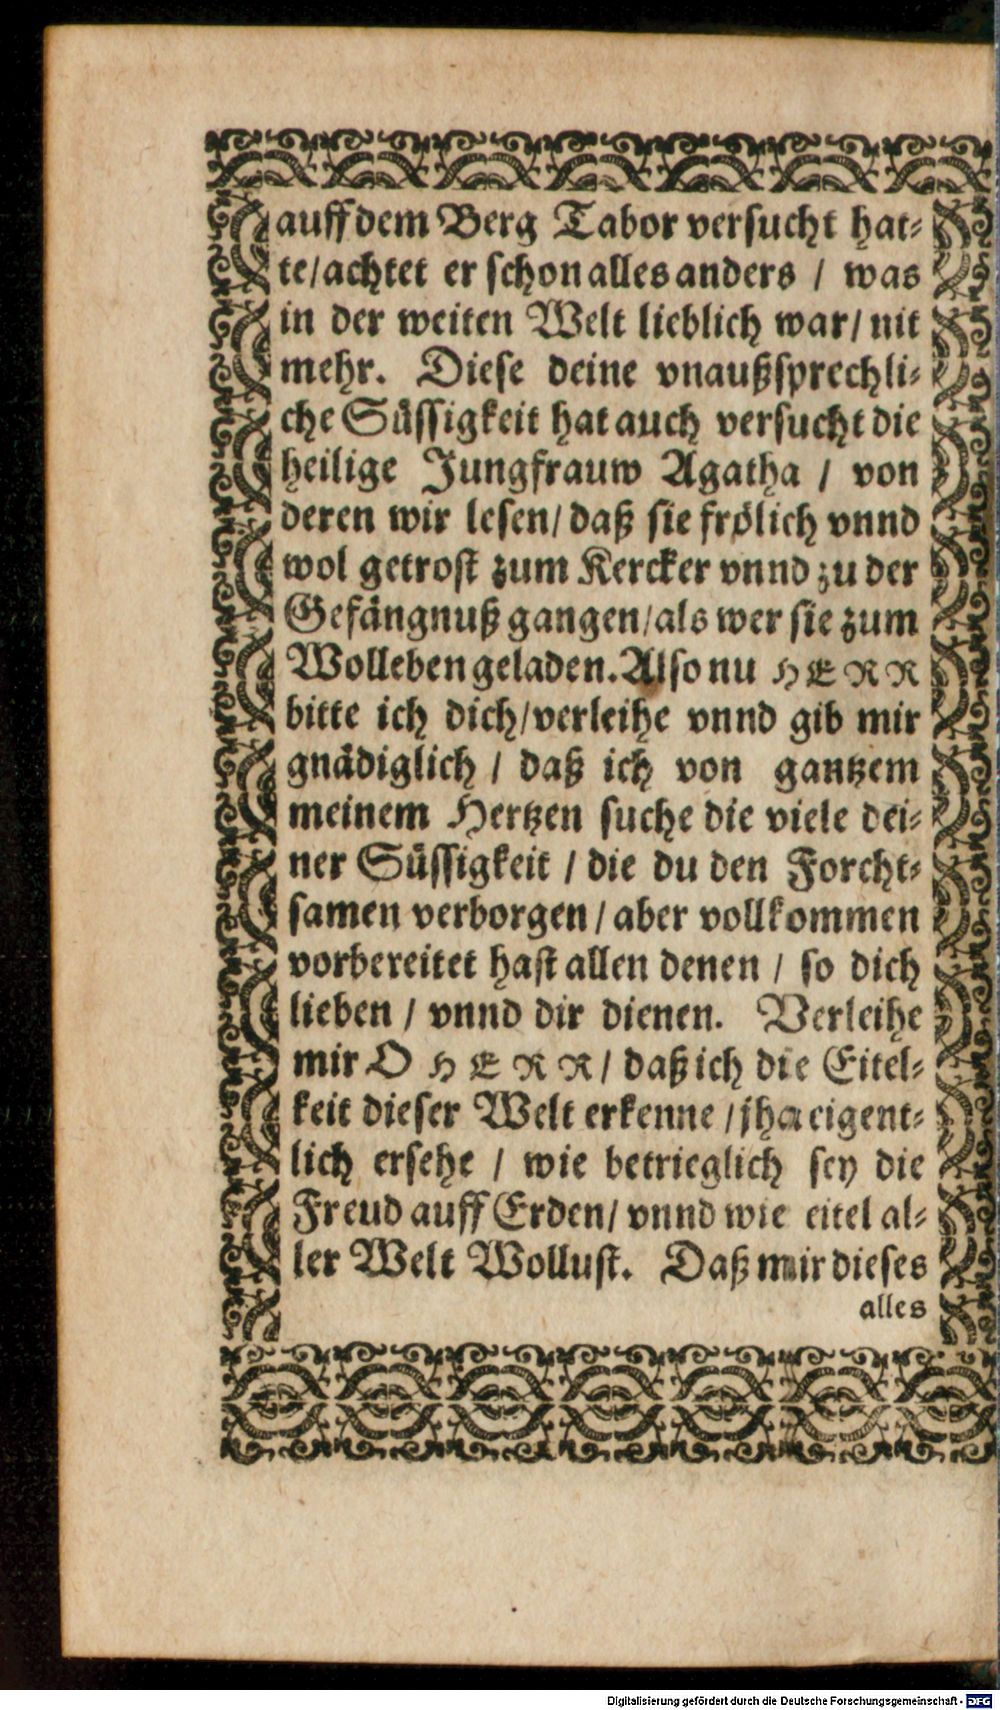 auff dem Berg Tabor versucht hat-
te/achtet er schon alles anders / was
in der weiten Welt lieblich war/ nit
mehr. Diese deine vnaußsprechli-
che Süssigkeit hat auch versucht die
heilige Jungfrauw Agatha / von
deren wir lesen/ daß sie frölich vnnd
wol getrost zum Kercker vnnd zu der
Gefängnuß gangen/als wer sie zum
Wolleben geladen. Also nu HERR
bitte ich dich/verleihe vnnd gib mir
gnädiglich / daß ich von gantzem
meinem Hertzen suche die viele dei-
ner Süssigkeit / die du den Forcht-
samen verborgen / aber vollkommen
vorbereitet hast allen denen / so dich
lieben / vnnd dir dienen. Verleihe
mir O HERR/ daß ich die Eitel-
keit dieser Welt erkenne / eigent-
lich ersehe / wie betrieglich sey die
Freud auff Erden/ vnnd wie eitel al-
ler Welt Wollust. Daß mir dieses
alles
Digitalisierung gefördert durch die Deutsche Forschungsgemeinschaft - DFG